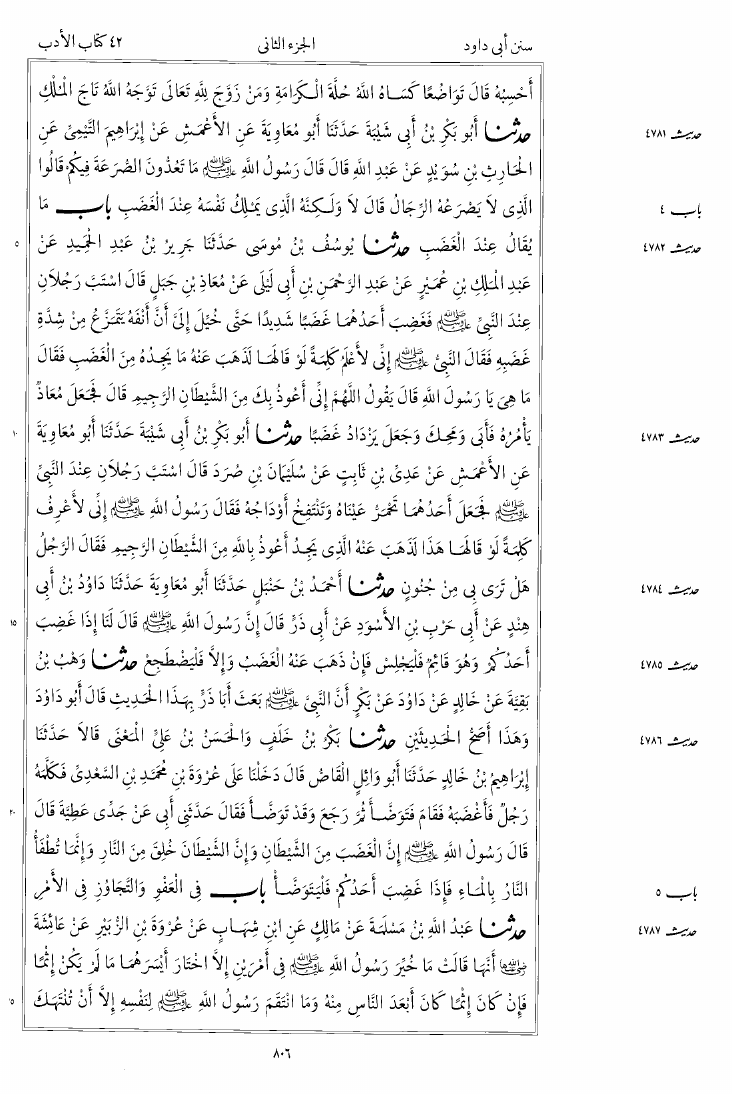 سنن أبى داود الجزء الثانى ٤٢ كتاب الأدب
أَحْسِبُهُ قَالَ تَوَاضُعًا كَسَاهُ اللَّهُ حُلَّةَ الْكَرَامَةِ وَمَنْ زَوَّجَ لِلَّهِ تَعَالَى تَوَّجَهُ اللَّهُ تَاجَ الْمُلْكِ
حديث ٤٧٨١ حدثنا أَبُو بَكْرِ بْنُ أَبِى شَيْبَةَ حَدَّثَنَا أَبُو مُعَاوِيَةَ عَنِ الأَعْمَشِ عَنْ إِبْرَاهِيمَ التَّيْمِىِّ عَنِ
الْحَارِثِ بْنِ سُوَيْدٍ عَنْ عَبْدِ اللَّهِ قَالَ قَالَ رَسُولُ اللَّهِ ﷺ مَا تَعُدُّونَ الصُّرَعَةَ فِيكُمْ قَالُوا
باب ٤ الَّذِى لاَ يَصْرَعُهُ الرِّجَالُ قَالَ لاَ وَلَكِنَّهُ الَّذِى يَمْلِكُ نَفْسَهُ عِنْدَ الْغَضَبِ باب مَا
حديث ٤٧٨٢ يُقَالُ عِنْدَ الْغَضَبِ حدثنا يُوسُفُ بْنُ مُوسَى حَدَّثَنَا جَرِيرُ بْنُ عَبْدِ الْحَمِيدِ عَنْ ٥
عَبْدِ الْمَلِكِ بْنِ عُمَيْرٍ عَنْ عَبْدِ الرَّحْمَنِ بْنِ أَبِى لَيْلَى عَنْ مُعَاذِ بْنِ جَبَلٍ قَالَ اسْتَبَّ رَجُلاَنِ
عِنْدَ النَّبِىِّ ﷺ فَغَضِبَ أَحَدُهُمَا غَضَبًا شَدِيدًا حَتَّى خُيِّلَ إِلَىَّ أَنَّ أَنْفَهُ يَتَمَزَّعُ مِنْ شِدَّةِ
غَضَبِهِ فَقَالَ النَّبِىُّ ﷺ إِنِّى لأَعْلَمُ كَلِمَةً لَوْ قَالَهَا لَذَهَبَ عَنْهُ مَا يَجِدُهُ مِنَ الْغَضَبِ فَقَالَ
مَا هِىَ يَا رَسُولَ اللَّهِ قَالَ يَقُولُ اللَّهُمَّ إِنِّى أَعُوذُ بِكَ مِنَ الشَّيْطَانِ الرَّجِيمِ قَالَ فَجَعَلَ مُعَاذٌ
حديث ٤٧٨٣ يَأْمُرُهُ فَأَبَى وَمَحِكَ وَجَعَلَ يَزْدَادُ غَضَبًا حدثنا أَبُو بَكْرِ بْنُ أَبِى شَيْبَةَ حَدَّثَنَا أَبُو مُعَاوِيَةَ ١٠
عَنِ الأَعْمَشِ عَنْ عَدِىِّ بْنِ ثَابِتٍ عَنْ سُلَيْمَانَ بْنِ صُرَدٍ قَالَ اسْتَبَّ رَجُلاَنِ عِنْدَ النَّبِىِّ
ﷺ فَجَعَلَ أَحَدُهُمَا تَحْمَرُّ عَيْنَاهُ وَتَنْتَفِخُ أَوْدَاجُهُ فَقَالَ رَسُولُ اللَّهِ ﷺ إِنِّى لأَعْرِفُ
كَلِمَةً لَوْ قَالَهَا هَذَا لَذَهَبَ عَنْهُ الَّذِى يَجِدُ أَعُوذُ بِاللَّهِ مِنَ الشَّيْطَانِ الرَّجِيمِ فَقَالَ الرَّجُلُ
حديث ٤٧٨٤ هَلْ تَرَى بِى مِنْ جُنُونٍ حدثنا أَحْمَدُ بْنُ حَنْبَلٍ حَدَّثَنَا أَبُو مُعَاوِيَةَ حَدَّثَنَا دَاوُدُ بْنُ أَبِى
هِنْدٍ عَنْ أَبِى حَرْبِ بْنِ الأَسْوَدِ عَنْ أَبِى ذَرٍّ قَالَ إِنَّ رَسُولَ اللَّهِ ﷺ قَالَ لَنَا إِذَا غَضِبَ ١٥
حديث ٤٧٨٥ أَحَدُكُمْ وَهُوَ قَائِمٌ فَلْيَجْلِسْ فَإِنْ ذَهَبَ عَنْهُ الْغَضَبُ وَإِلاَّ فَلْيَضْطَجِعْ حدثنا وَهْبُ بْنُ
بَقِيَّةَ عَنْ خَالِدٍ عَنْ دَاوُدَ عَنْ بَكْرٍ أَنَّ النَّبِىَّ ﷺ بَعَثَ أَبَا ذَرٍّ بِهَذَا الْحَدِيثِ قَالَ أَبُو دَاوُدَ
حديث ٤٧٨٦ وَهَذَا أَصَحُّ الْحَدِيثَيْنِ حدثنا بَكْرُ بْنُ خَلَفٍ وَالْحَسَنُ بْنُ عَلِىٍّ الْمَعْنَى قَالاَ حَدَّثَنَا
إِبْرَاهِيمُ بْنُ خَالِدٍ حَدَّثَنَا أَبُو وَائِلٍ الْقَاصُّ قَالَ دَخَلْنَا عَلَى عُرْوَةَ بْنِ مُحَمَّدِ بْنِ السَّعْدِىِّ فَكَلَّمَهُ
رَجُلٌ فَأَغْضَبَهُ فَقَامَ فَتَوَضَّأَ ثُمَّ رَجَعَ وَقَدْ تَوَضَّأَ فَقَالَ حَدَّثَنِى أَبِى عَنْ جَدِّى عَطِيَّةَ قَالَ ٢٠
قَالَ رَسُولُ اللَّهِ ﷺ إِنَّ الْغَضَبَ مِنَ الشَّيْطَانِ وَإِنَّ الشَّيْطَانَ خُلِقَ مِنَ النَّارِ وَإِنَّمَا تُطْفَأُ
باب ٥ النَّارُ بِالْمَاءِ فَإِذَا غَضِبَ أَحَدُكُمْ فَلْيَتَوَضَّأْ باب فِى الْعَفْوِ وَالتَّجَاوُزِ فِى الأَمْرِ
حديث ٤٧٨٧ حدثنا عَبْدُ اللَّهِ بْنُ مَسْلَمَةَ عَنْ مَالِكٍ عَنِ ابْنِ شِهَابٍ عَنْ عُرْوَةَ بْنِ الزُّبَيْرِ عَنْ عَائِشَةَ
رضي الله عنها أَنَّهَا قَالَتْ مَا خُيِّرَ رَسُولُ اللَّهِ ﷺ فِى أَمْرَيْنِ إِلاَّ اخْتَارَ أَيْسَرَهُمَا مَا لَمْ يَكُنْ إِثْمًا
فَإِنْ كَانَ إِثْمًا كَانَ أَبْعَدَ النَّاسِ مِنْهُ وَمَا انْتَقَمَ رَسُولُ اللَّهِ ﷺ لِنَفْسِهِ إِلاَّ أَنْ تُنْتَهَكَ ٢٥
٨٠٦